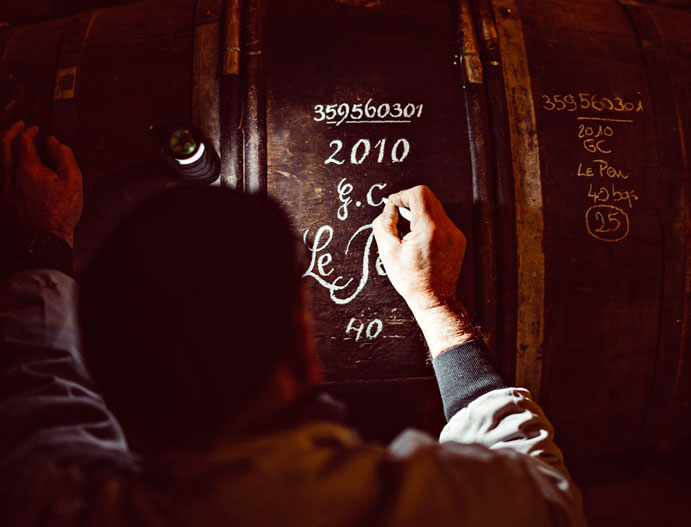 359560301
2010
G.C
Le
40
359560301
2010
GC
Le Peu
40 bgs
25